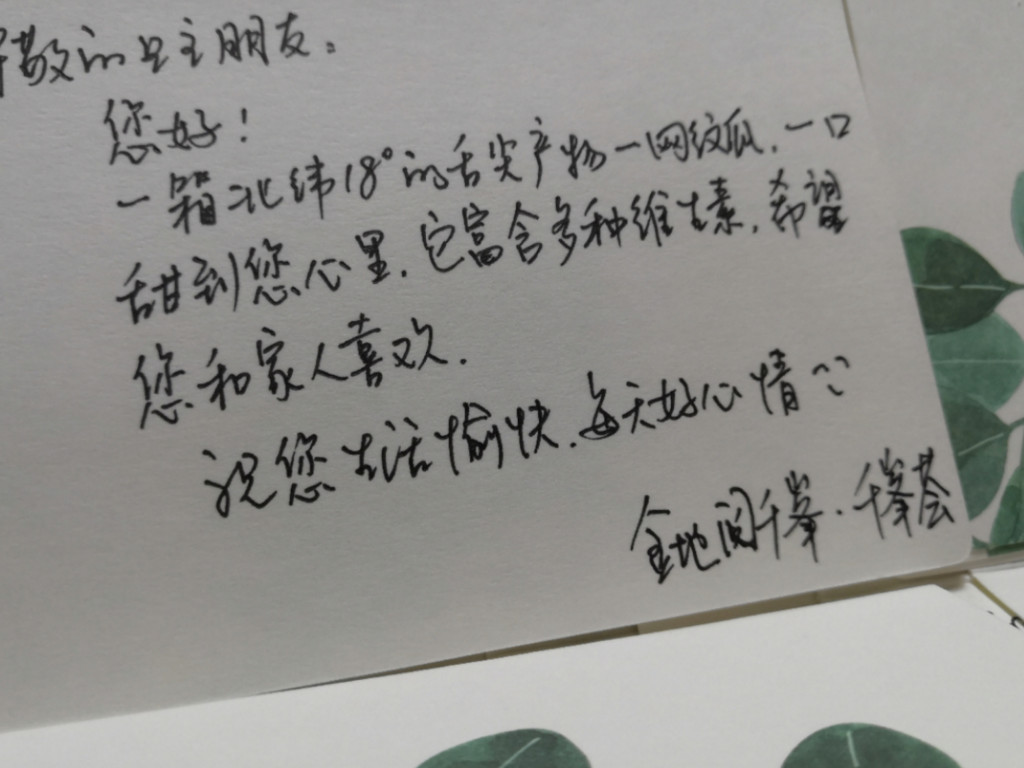 尊敬的业主朋友:
您好!
一箱北纬18°的舌尖产物—网纹瓜,一口
甜到您心里,它富含多种维生素,希望
您和家人喜欢.
祝您生活愉快,每天好心情
金地阅千峯·千峯荟